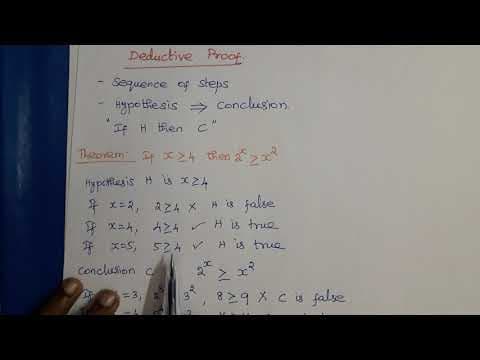 Deductive Proof.
- Sequence of steps
- Hypothesis ⇒ Conclusion.
"If H then C"
Theorem: If x ≥ 4 then 2^x ≥ x^2
Hypothesis H is x ≥ 4
If x=2, 2 ≥ 4 × H is false
If x=4, 4 ≥ 4 ✓ H is true
If x=5, 5 ≥ 4 ✓ H is true
Conclusion C 2^x ≥ x^2
If x=3, 3^2, 8 ≥ 9 × C is false